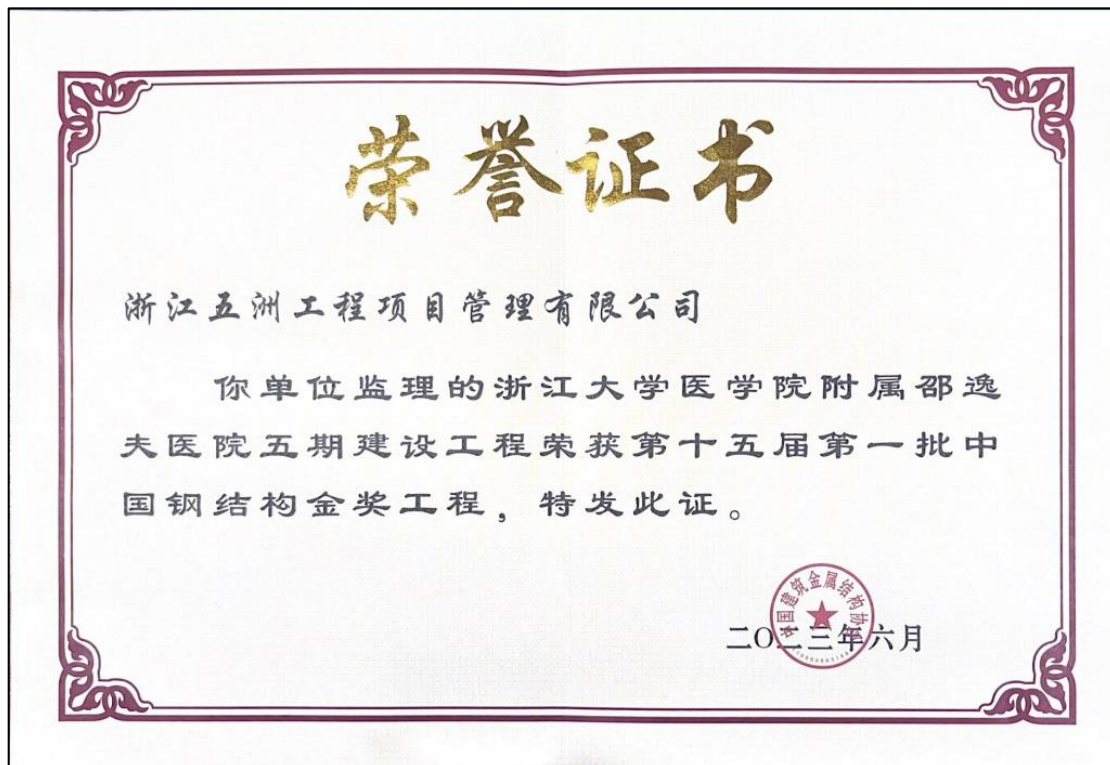 荣誉证书
浙江五洲工程项目管理有限公司
你单位监理的浙江大学医学院附属邵逸
夫医院五期建设工程荣获第十五届第一批中
国钢结构金奖工程，特发此证。
中国建筑金属结构协会
二〇二三年六月